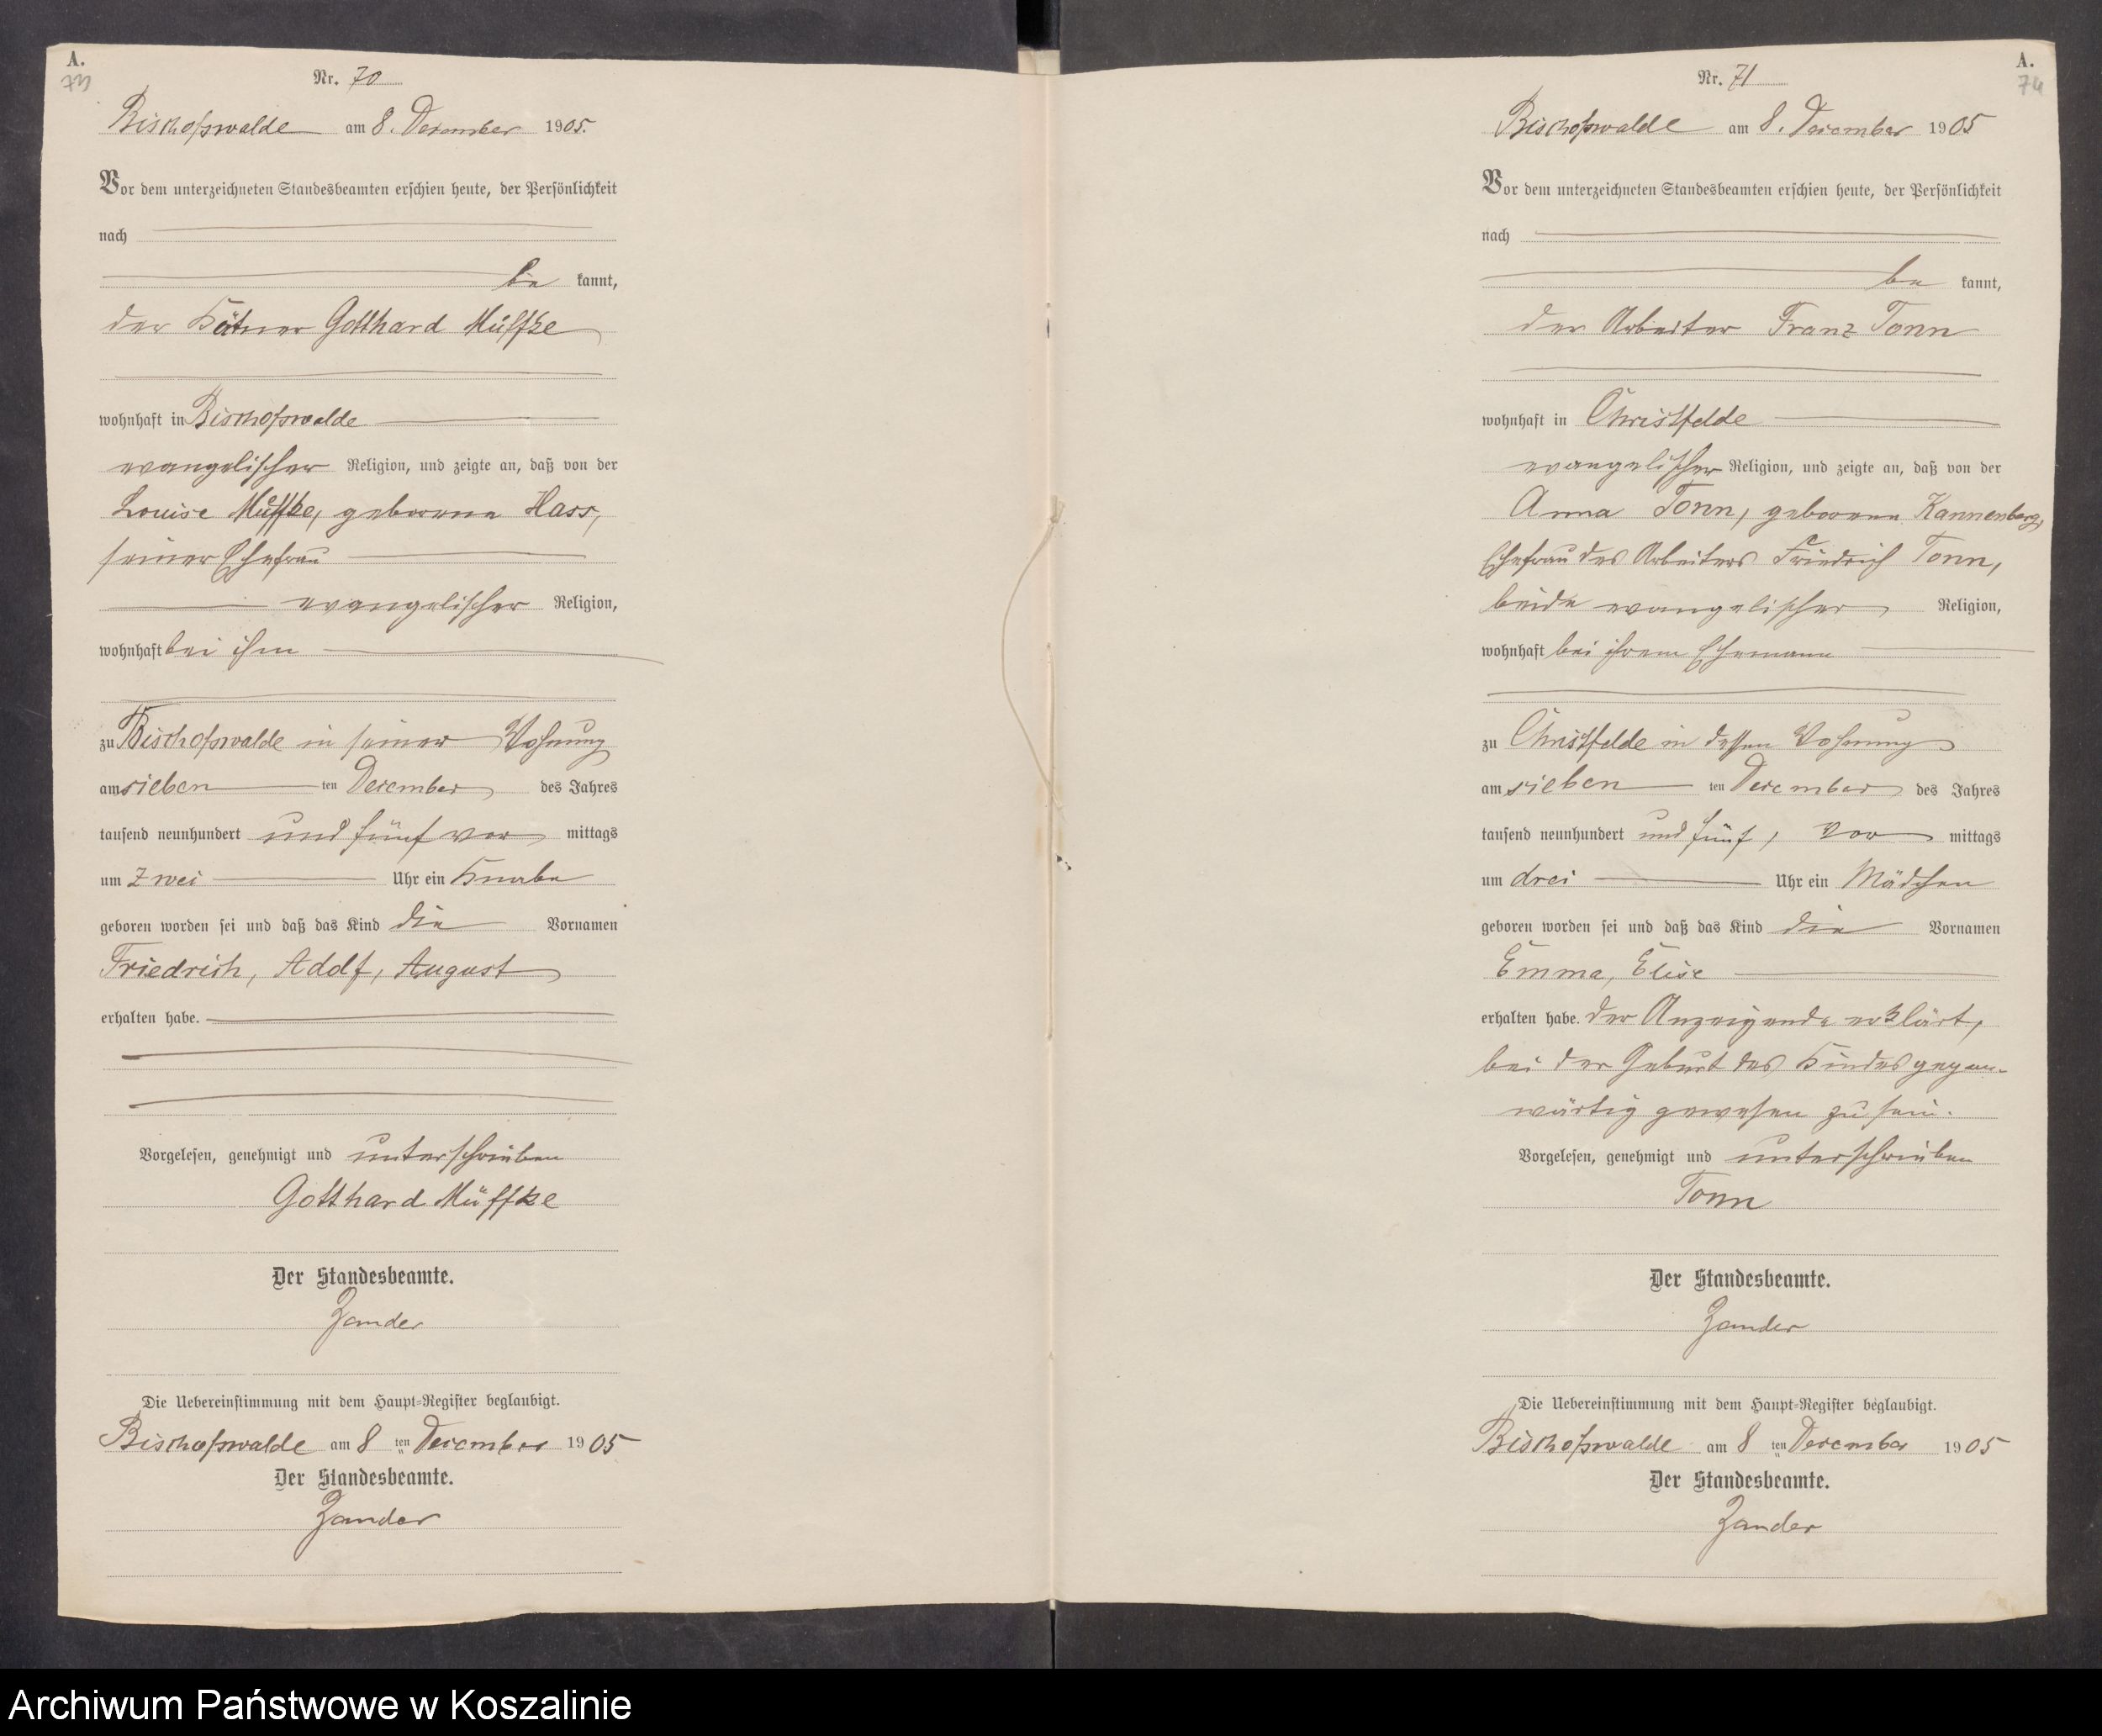 A.
73
Nr. 70
Bischofswalde am 8. Dezember 1905.
Vor dem unterzeichneten Standesbeamten erschien heute, der Persönlichkeit
nach
be kannt,
der Kätner Gotthard Müffke
wohnhaft in Bischofswalde
evangelischer Religion, und zeigte an, daß von der
Louise Müffke, geborene Hass,
seiner Ehefrau
evangelischer Religion,
wohnhaft bei ihm
zu Bischofswalde in seiner Wohnung
am sieben ten Dezember des Jahres
tausend neunhundert und fünf vor mittags
um zwei Uhr ein Knabe
geboren worden sei und daß das Kind die Vornamen
Friedrich, Adolf, August
erhalten habe.
Vorgelesen, genehmigt und unterschrieben
Gotthard Müffke
Der Standesbeamte.
Zander
Die Uebereinstimmung mit dem Haupt-Register beglaubigt.
Bischofswalde am 8 ten Dezember 1905
Der Standesbeamte.
Zander
A.
74
Nr. 71
Bischofswalde am 8. Dezember 1905
Vor dem unterzeichneten Standesbeamten erschien heute, der Persönlichkeit
nach
be kannt,
der Arbeiter Franz Tonn
wohnhaft in Christfelde
evangelischer Religion, und zeigte an, daß von der
Anna Tonn, geborene Kannenberg,
Ehefrau des Arbeiters Friedrich Tonn,
beide evangelischer Religion,
wohnhaft bei ihrem Ehemann
zu Christfelde in dessen Wohnung
am sieben ten Dezember des Jahres
tausend neunhundert und fünf, vor mittags
um drei Uhr ein Mädchen
geboren worden sei und daß das Kind die Vornamen
Emma, Elise
erhalten habe. Der Anzeigende erklärt,
bei der Geburt des Kindes gegen-
wärtig gewesen zu sein.
Vorgelesen, genehmigt und unterschrieben
Tonn
Der Standesbeamte.
Zander
Die Uebereinstimmung mit dem Haupt-Register beglaubigt.
Bischofswalde am 8 ten Dezember 1905
Der Standesbeamte.
Zander
Archiwum Państwowe w Koszalinie